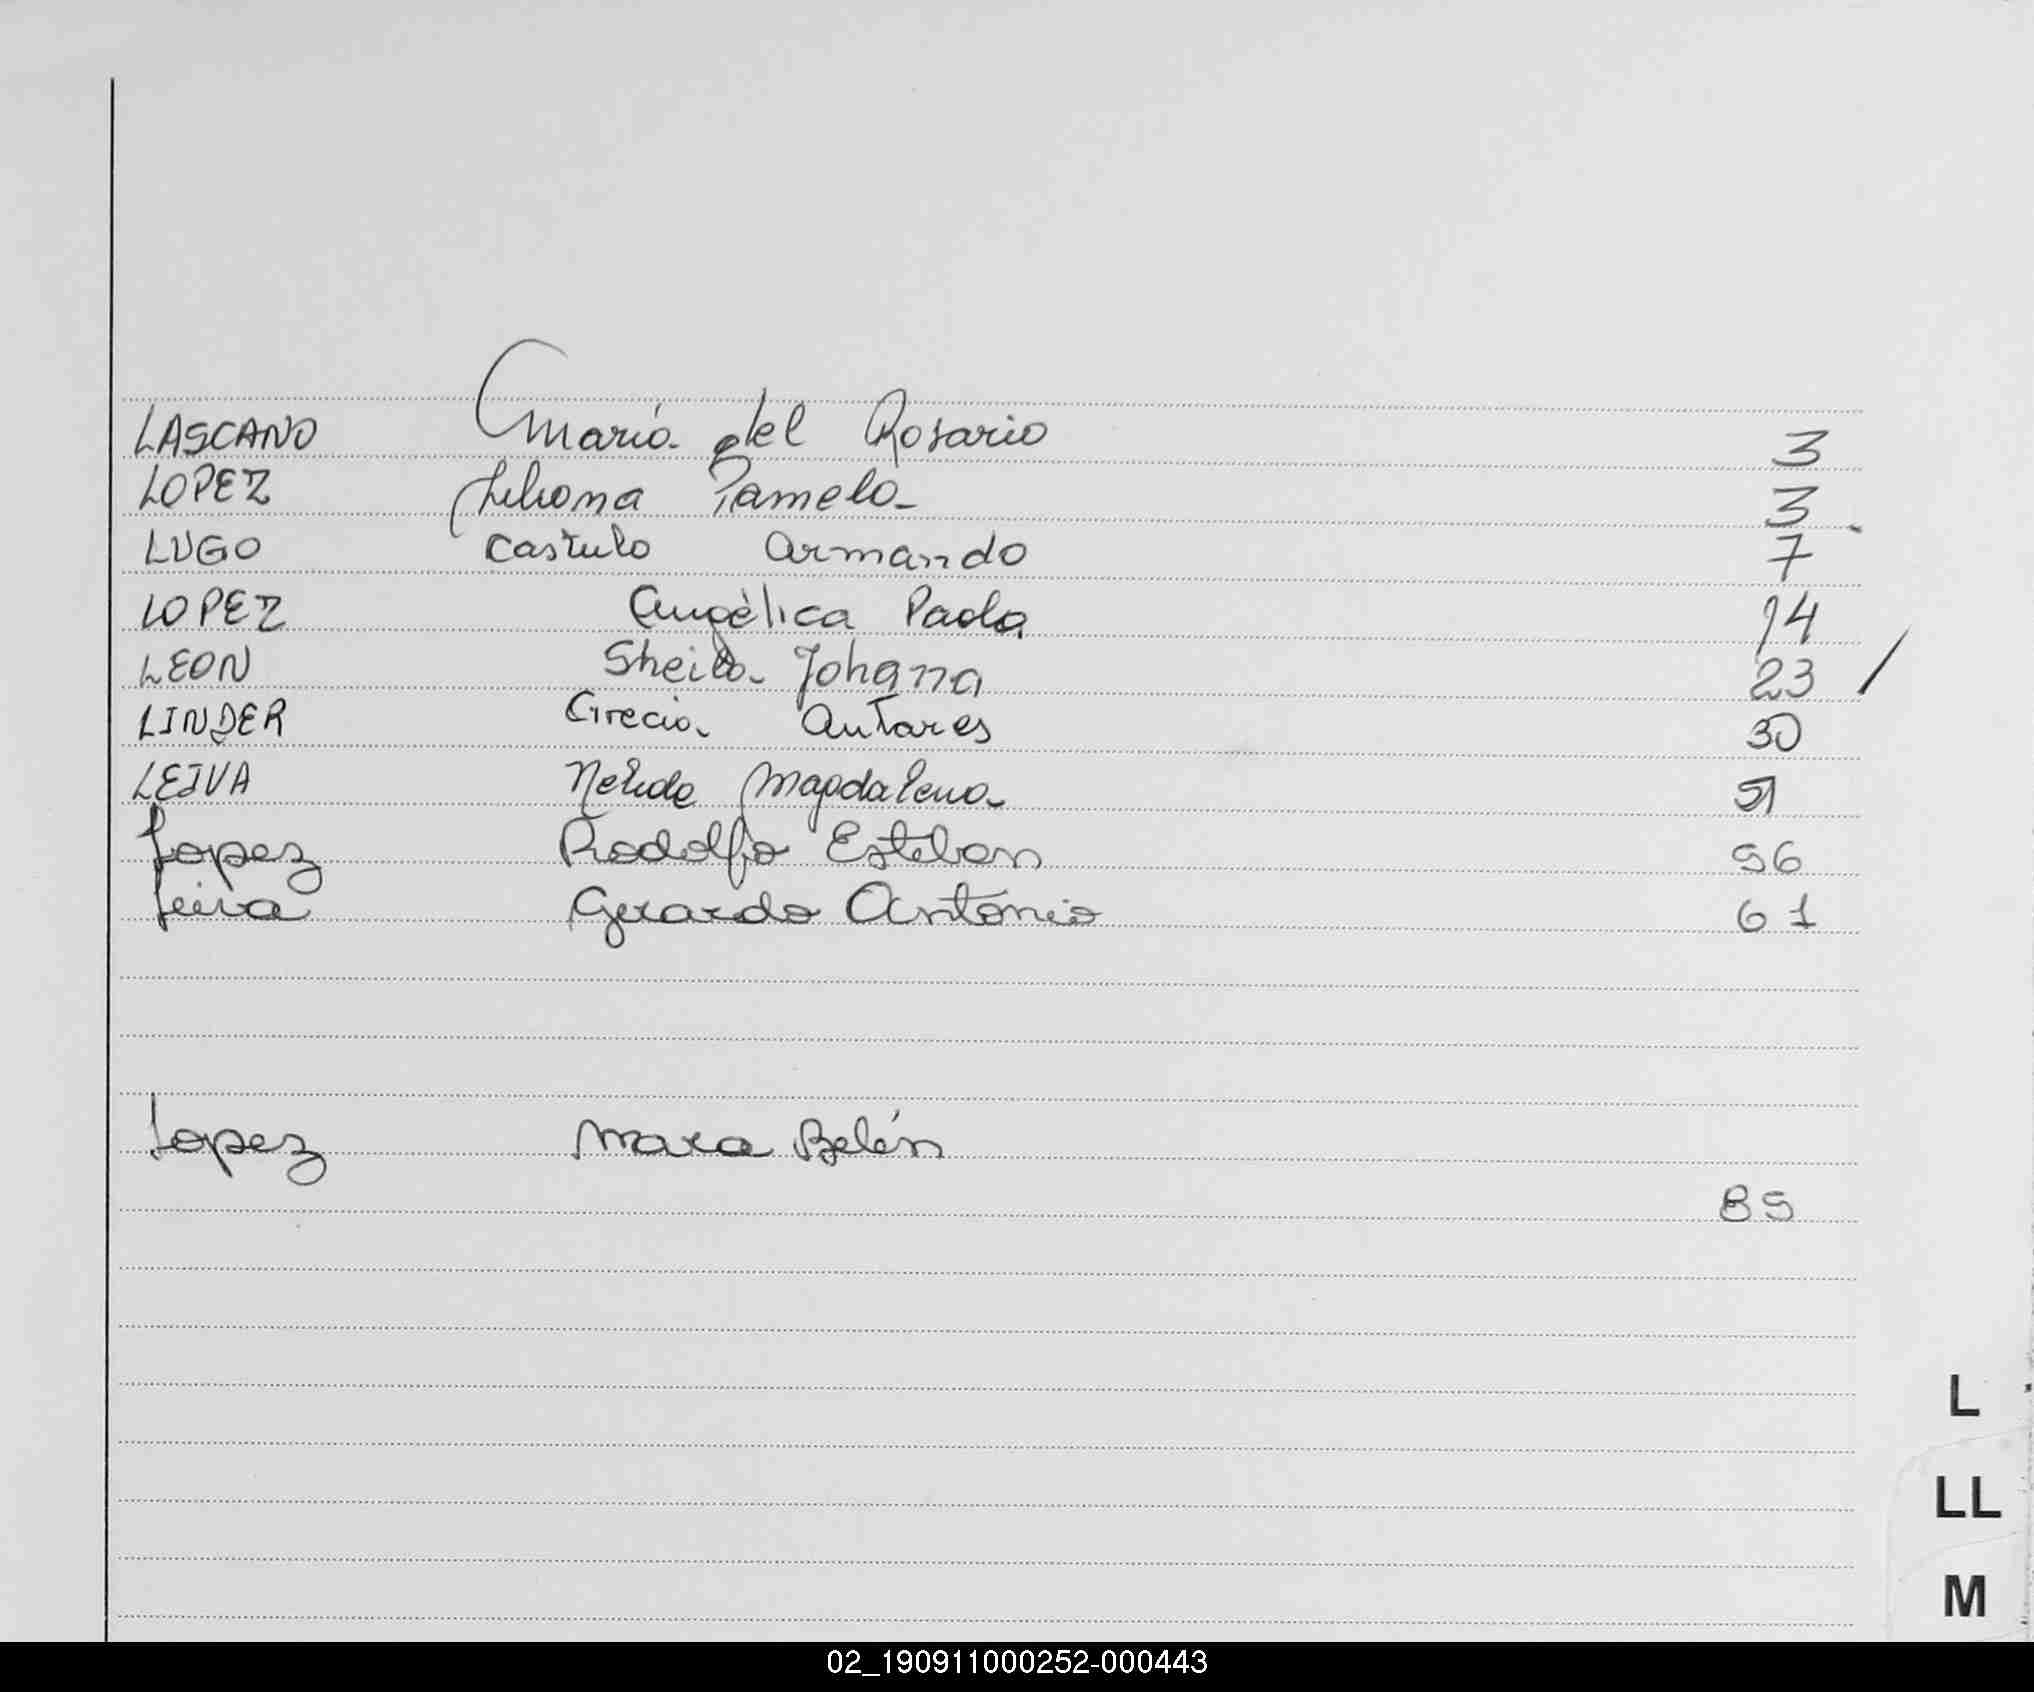 LASCANO María del Rosario 3
LOPEZ Liliana Pamela 3
LUGO Castulo Armando 7
LOPEZ Angélica Paola 14
LEON Sheila Johana 23
LINDER Grecia Antares 30
LEIVA Nelida Magdalena 51
Lopez Rodolfo Esteban 56
Leiva Gerardo Antonio 61
Lopez Mara Belén
85
L
LL
M
02_190911000252-000443